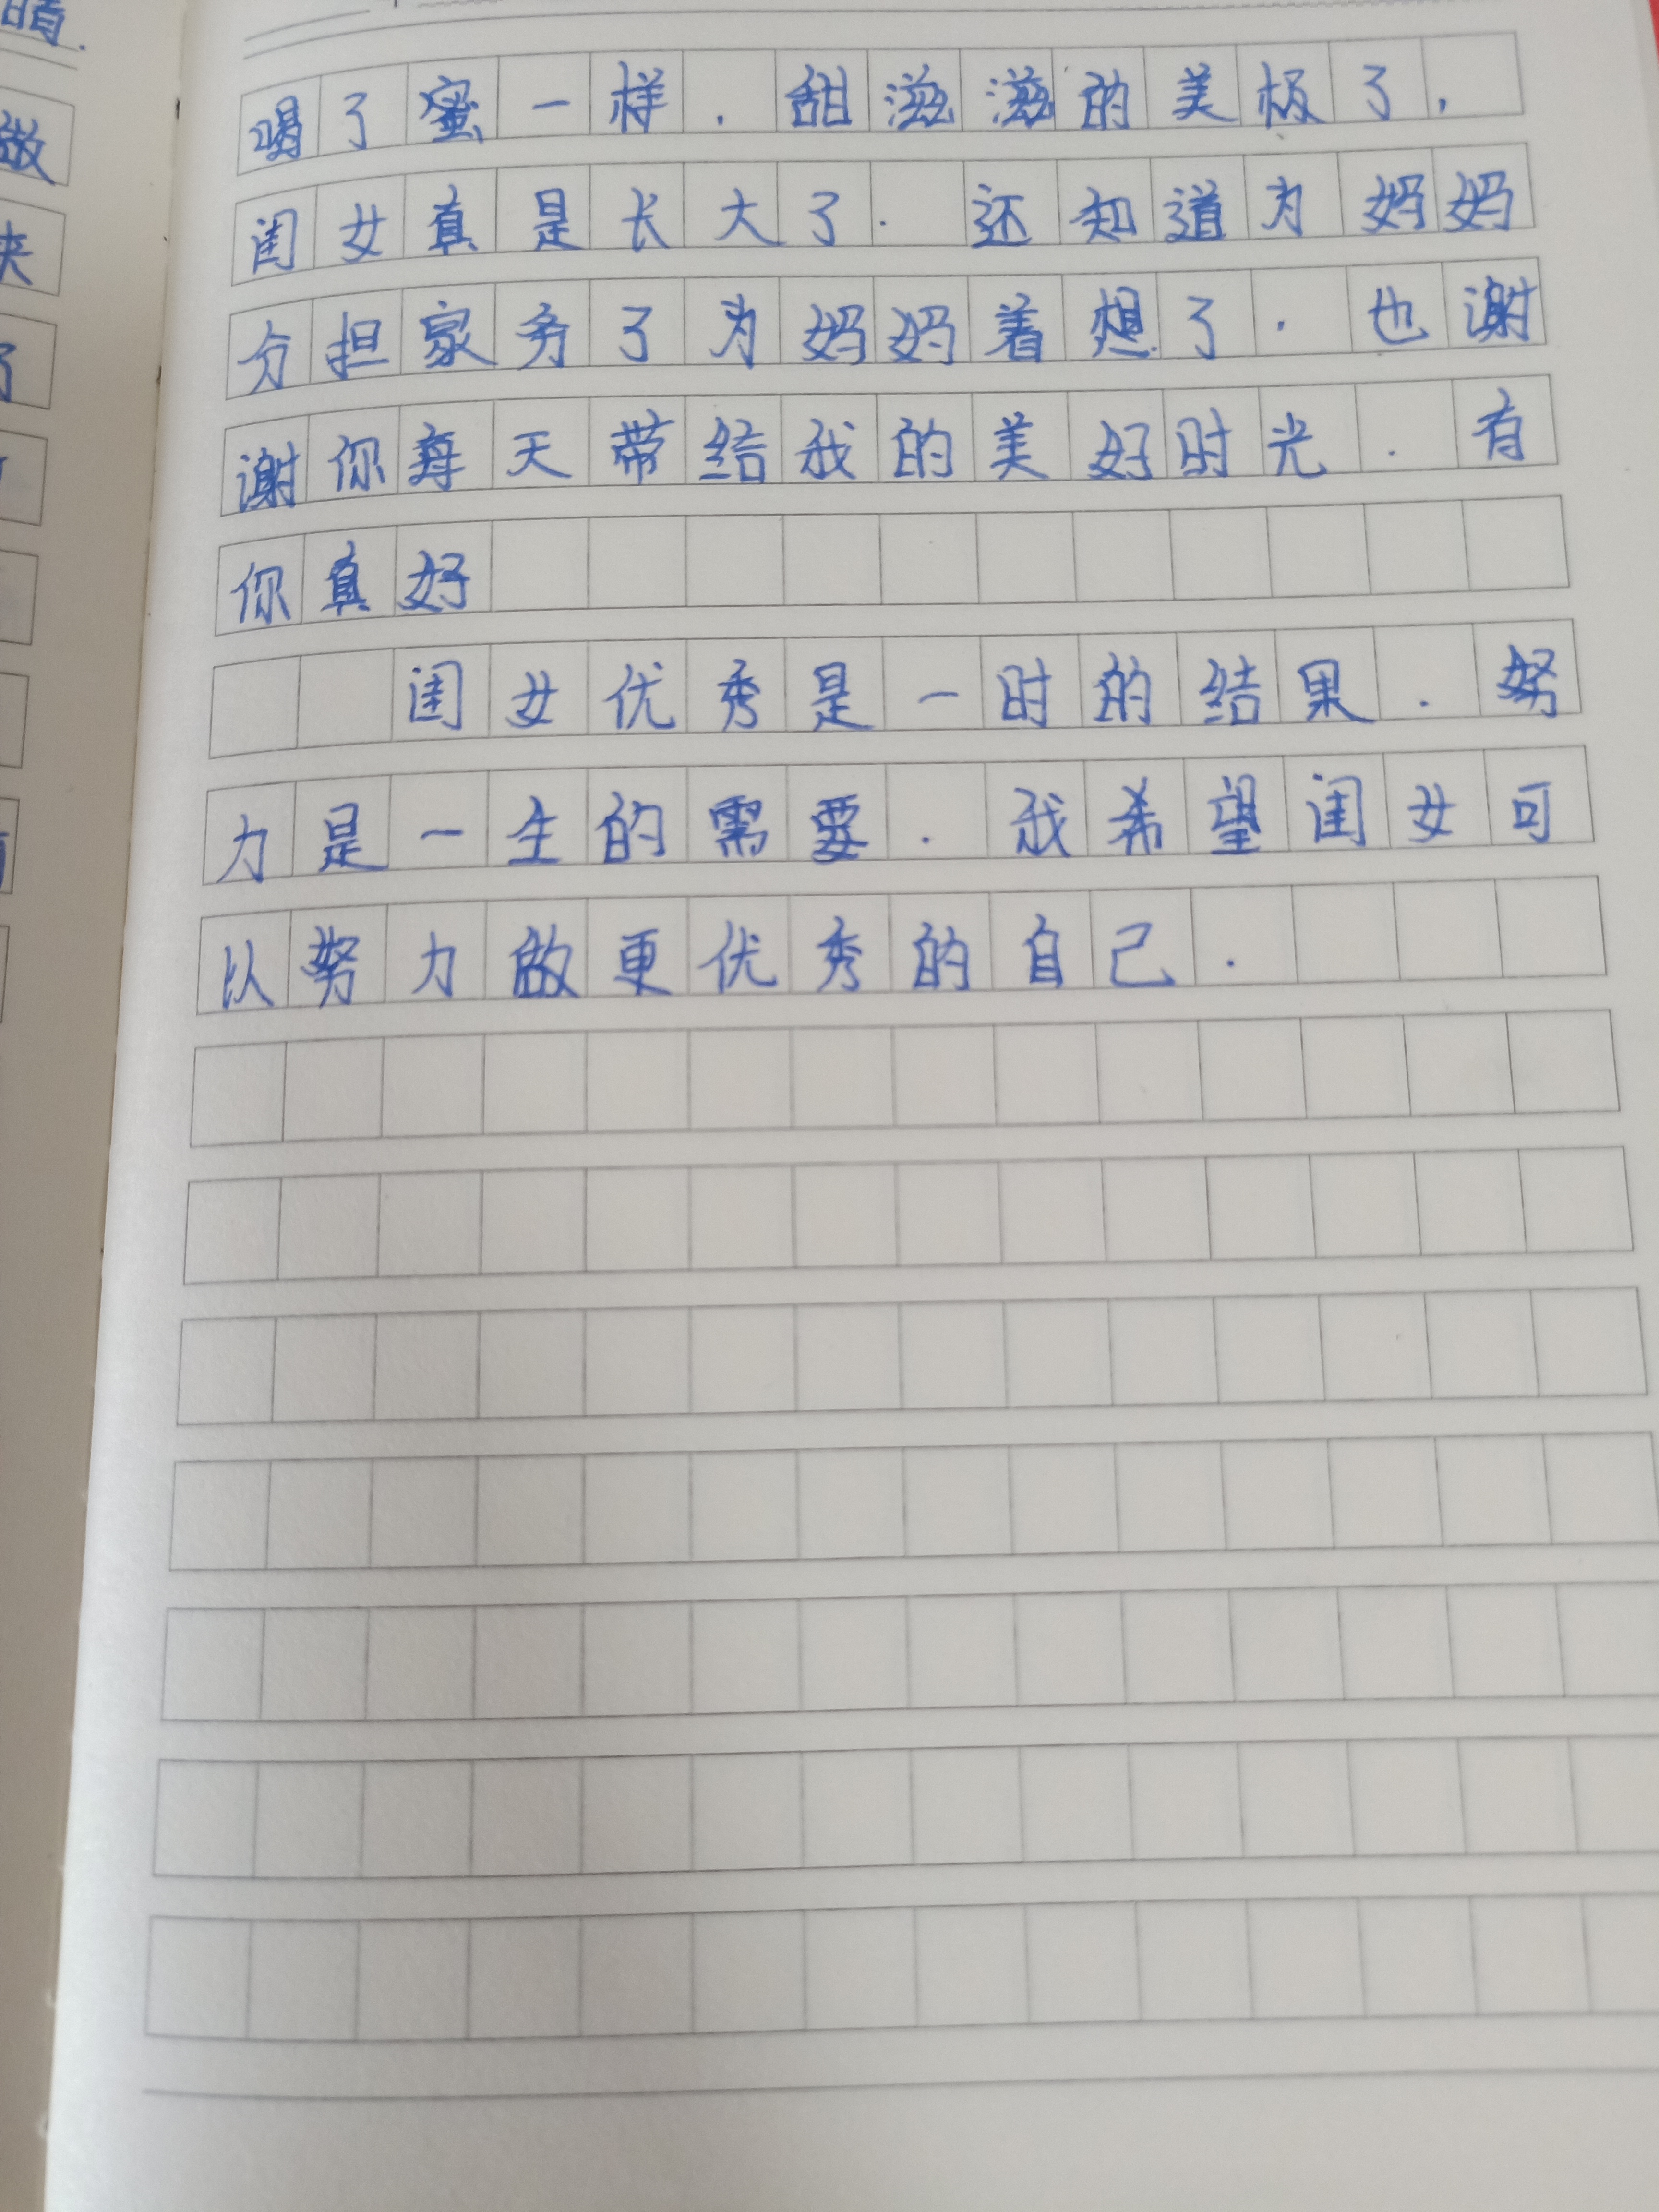 喝了蜜一样.甜滋滋的美极了,
闺女真是长大了.还知道为妈妈
分担家务了为妈妈着想了.也谢
谢你每天带给我的美好时光.有
你真好
闺女优秀是一时的结果.努
力是一生的需要.我希望闺女可
以努力做更优秀的自己.